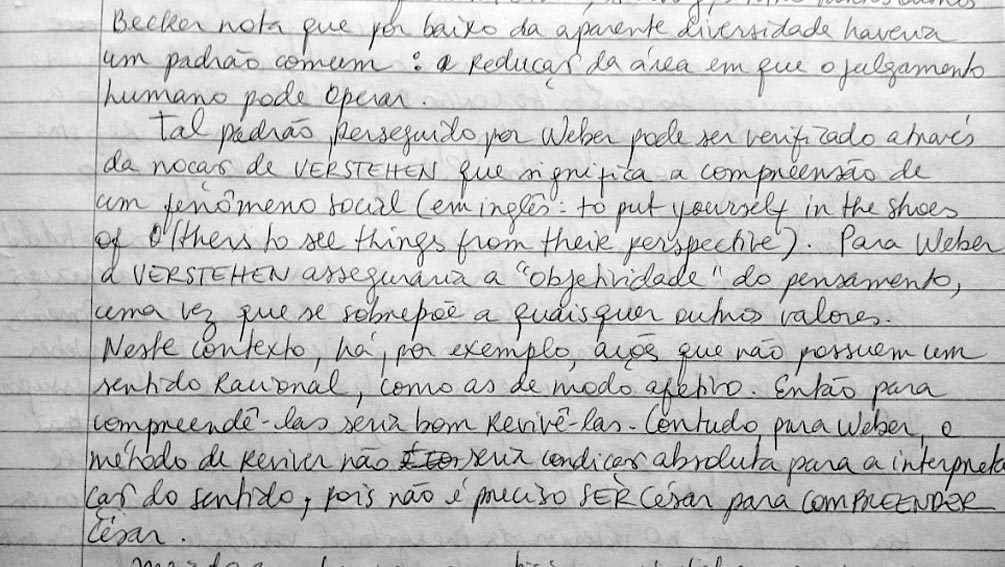 Becker nota que por baixo da aparente diversidade haveria
um padrão comum : a redução da área em que o julgamento
humano pode operar.
Tal padrão, perseguido por Weber pode ser verificado através
da noção de VERSTEHEN que significa a compreensão de
um fenômeno social (em inglês: to put yourself in the shoes
of others to see things from their perspective). Para Weber
a VERSTEHEN asseguraria a "objetividade" do pensamento,
uma vez que se sobrepõe a quaisquer outros valores.
Neste contexto, há, por exemplo, ações que não possuem um
sentido racional, como as de modo afetivo. Então para
compreendê-las seria bom revivê-las. Contudo, para Weber, o
método de reviver não seria condição absoluta para a interpreta
ção do sentido, pois não é preciso SER César para COMPREENDER
César.